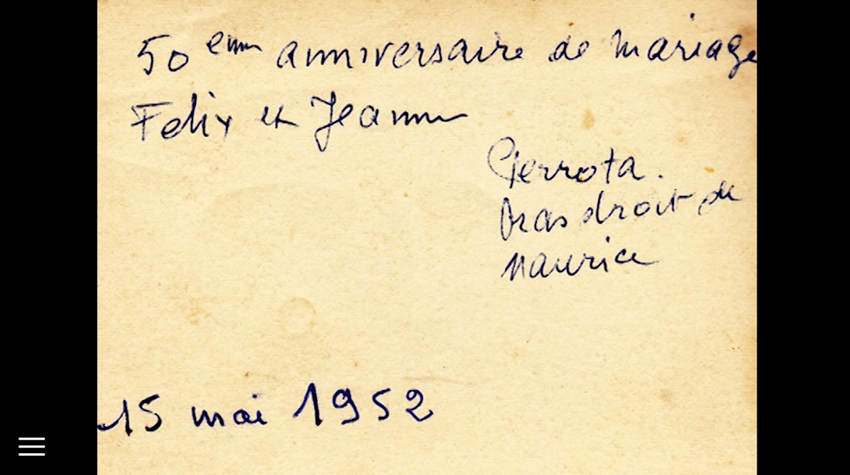 50 eme anniversaire de mariage
Felix et Jeanne
Pierrota.
bras droit de
Maurice
15 mai 1952